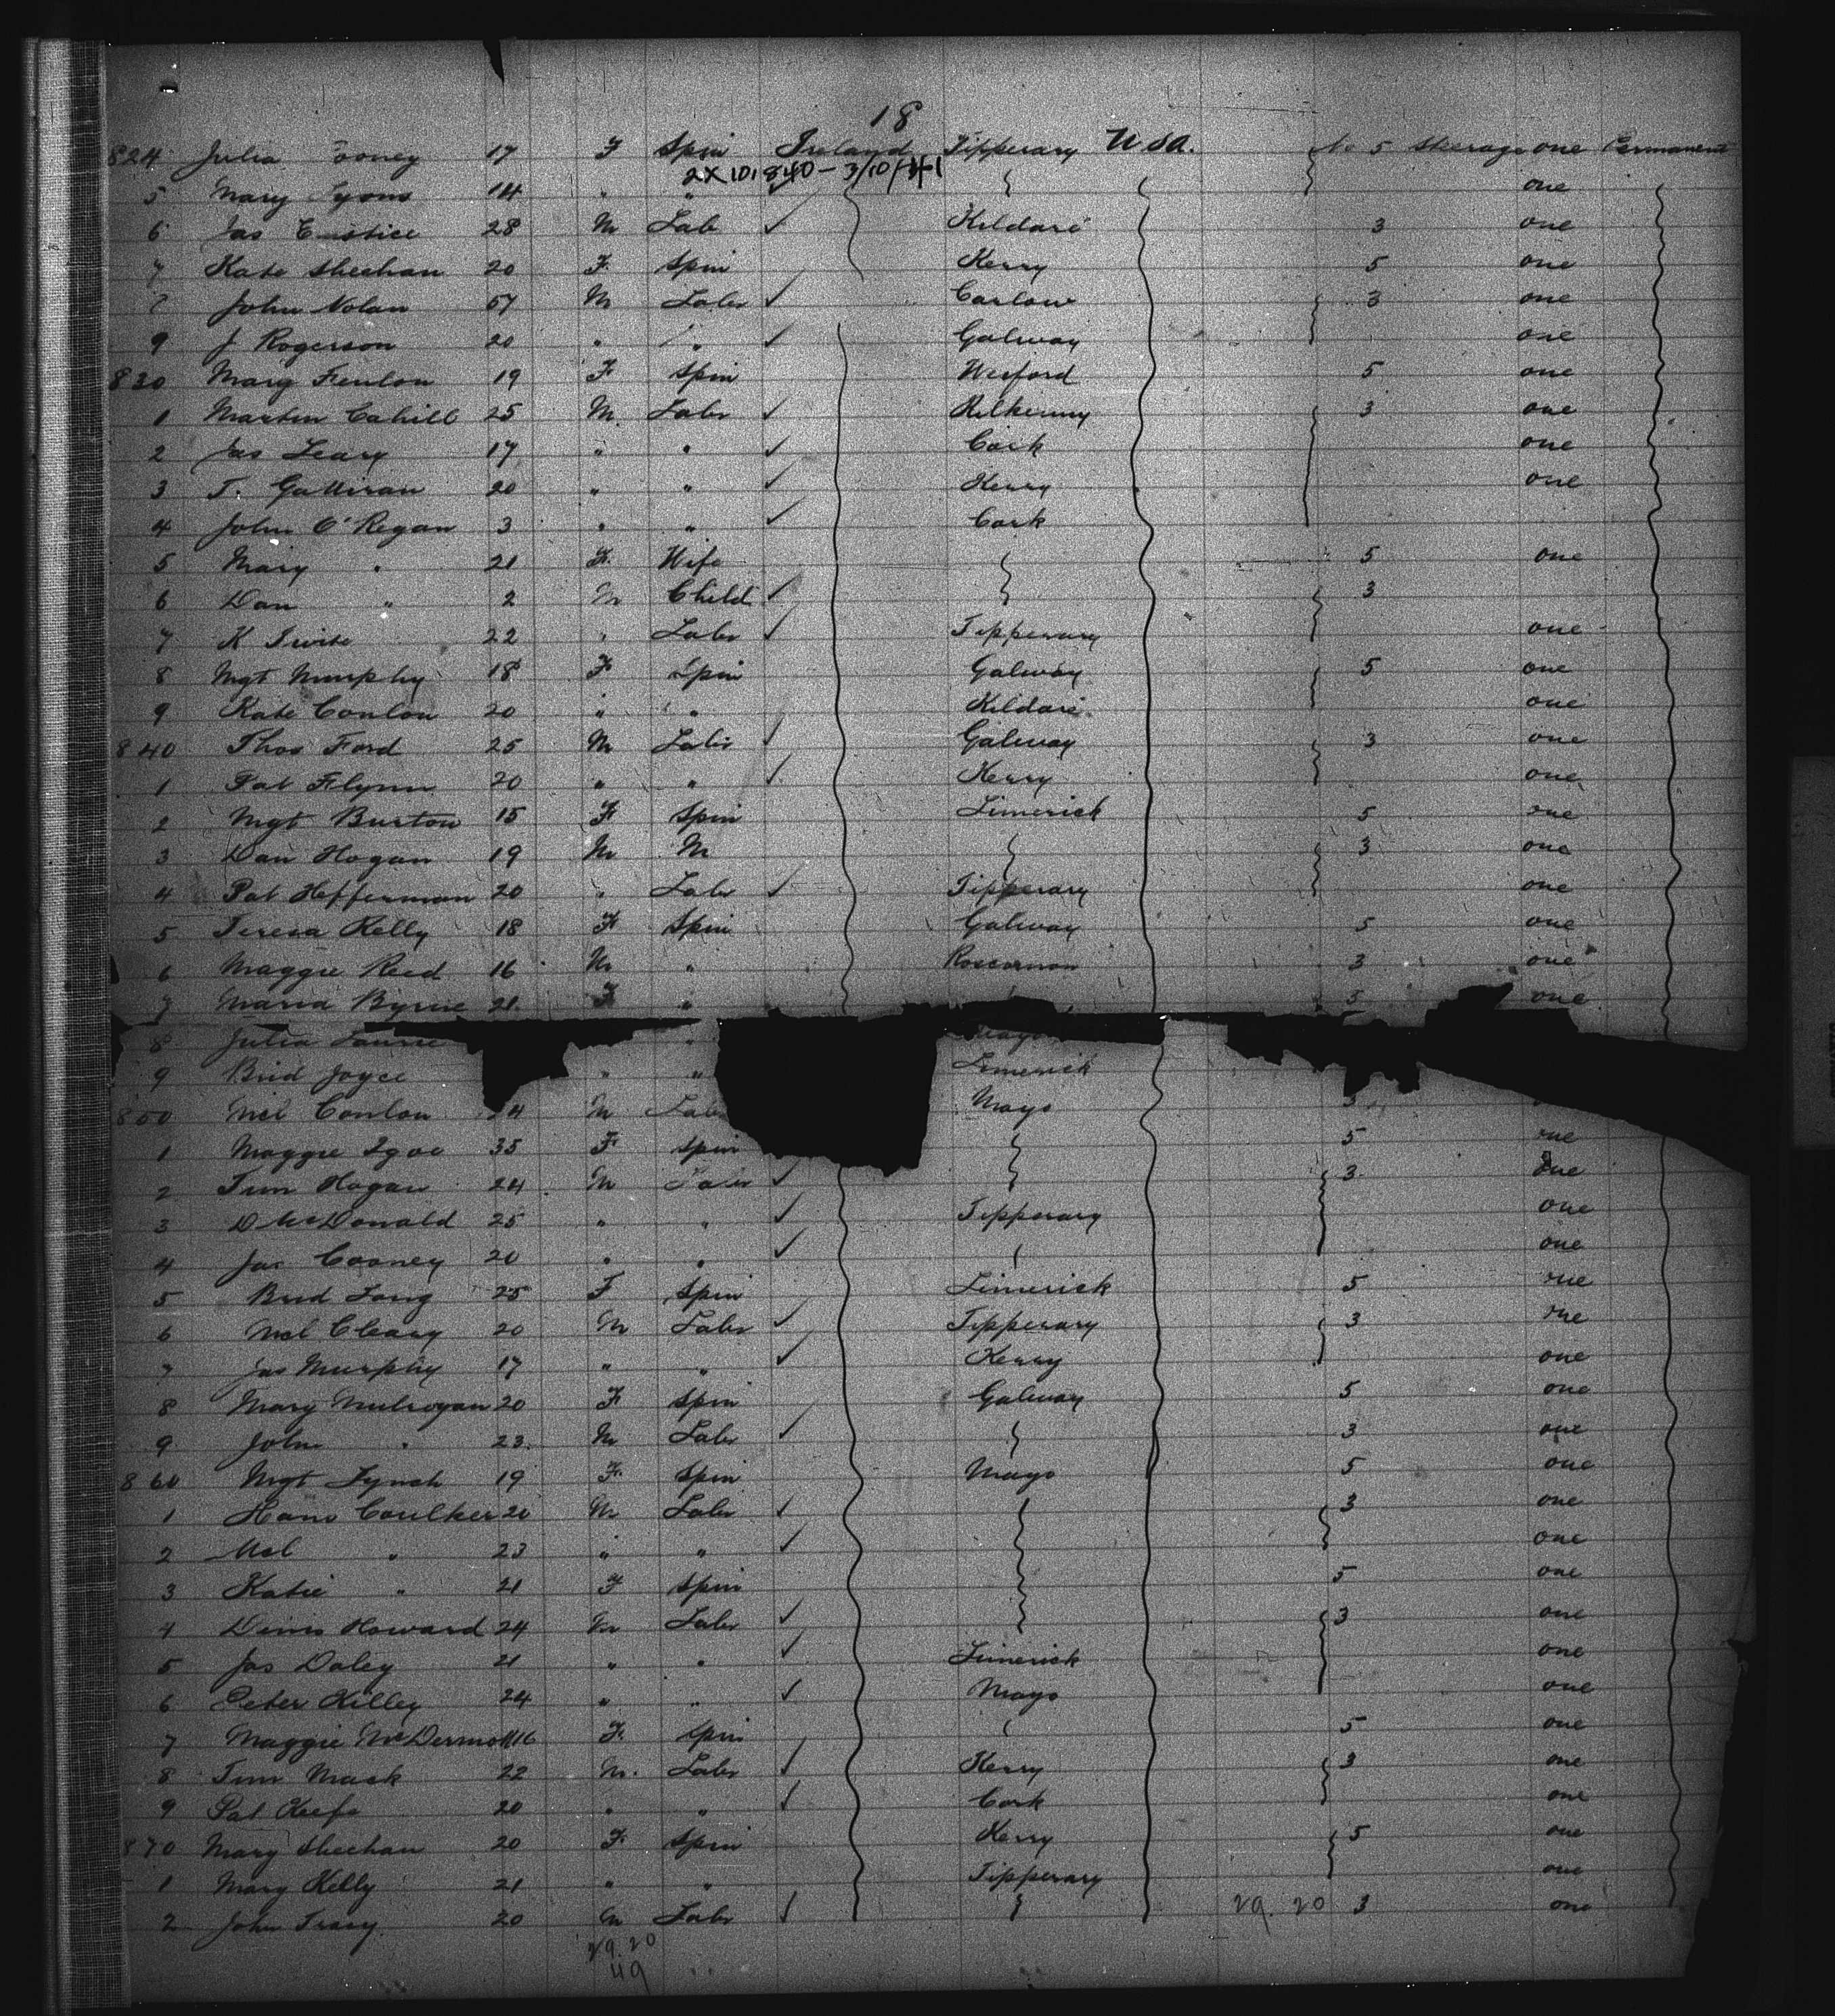 18
824 Julia Tooney 17 F Spin Ireland Tipperary USA. No 5 Steerage one Permanent
2X101840 - 3/10/41
5 Mary Lyons 14 " " one
6 Jas Eustice 28 M Lab ✓ Kildare 3 one
7 Kate Sheehan 20 F Spin Kerry 5 one
John Nolan 57 M Labr ✓ Carlow 3 one
9 J Rogerson 20 " " ✓ Galway one
830 Mary Fenlon 19 F Spin Wexford 5 one
1 Martin Cahill 25 M. Labr ✓ Kilkenny 3 one
2 Jas Leary 17 " " ✓ Cork one
3 T. Gallivan 20 " " ✓ Kerry one
4 John O'Regan 3 " " ✓ Cork
5 Mary " 21 F. Wife 5 one
6 Dan " 2 M Child ✓ 3
7 K 22 " Labr ✓ Tipperary one
8 Mgt Murphy 18 F Spin Galway 5 one
9 Kate Conlon 20 " " Kildare one
840 Thos Ford 25 M Labr ✓ Galway 3 one
1 Pat Flynn 20 " " ✓ Kerry one
2 Mgt Burton 15 F Spin Limerick 5 one
3 Dan Hogan 19 M M 3 one
4 Pat Hefferman 20 " Labr ✓ Tipperary one
5 Teresa Kelly 18 F Spin Galway 5 one
6 Maggie Reed 16 M " Roscommon 3 one
7 Maria Byrne 21 F " 5 one
8 Julia "
9 Brid Joyce " " Limerick
850 Mcl Conlon 4 M Labr Mayo 3
1 Maggie Igoe 35 F Spin 5 one
2 Tim Hogan 24 M Labr ✓ 3 one
3 D McDonald 25 " " ✓ Tipperary one
4 Jas Cooney 20 " " ✓ one
5 Brid Long 25 F Spin Limerick 5 one
6 Mcl Cleary 20 M Labr ✓ Tipperary 3 one
7 Jas Murphy 17 " " ✓ Kerry one
8 Mary Mulrogan 20 F Spin Galway 5 one
9 John " 23. M Labr ✓ 3 one
860 Mgt Lynch 19 F. Spin Mayo 5 one
1 Hano Coulker 20 M Labr ✓ 3 one
2 Mcl " 23 " " ✓ one
3 Katie " 21 F Spin 5 one
4 Denis Howard 24 M Labr ✓ 3 one
5 Jas Daley 21 " " ✓ Limerick one
6 Peter Killey 24 " " ✓ Mayo one
7 Maggie McDermott 16 F. Spin 5 one
8 Tim Mack 22 M. Labr ✓ Kerry 3 one
9 Pat Keefe 20 " " ✓ Cork one
870 Mary Sheehan 20 F Spin Kerry 5 one
1 Mary Kelly 21 " " Tipperary one
2 John Tracy 20 M Labr ✓ 29. 20 3 one
29. 20
49